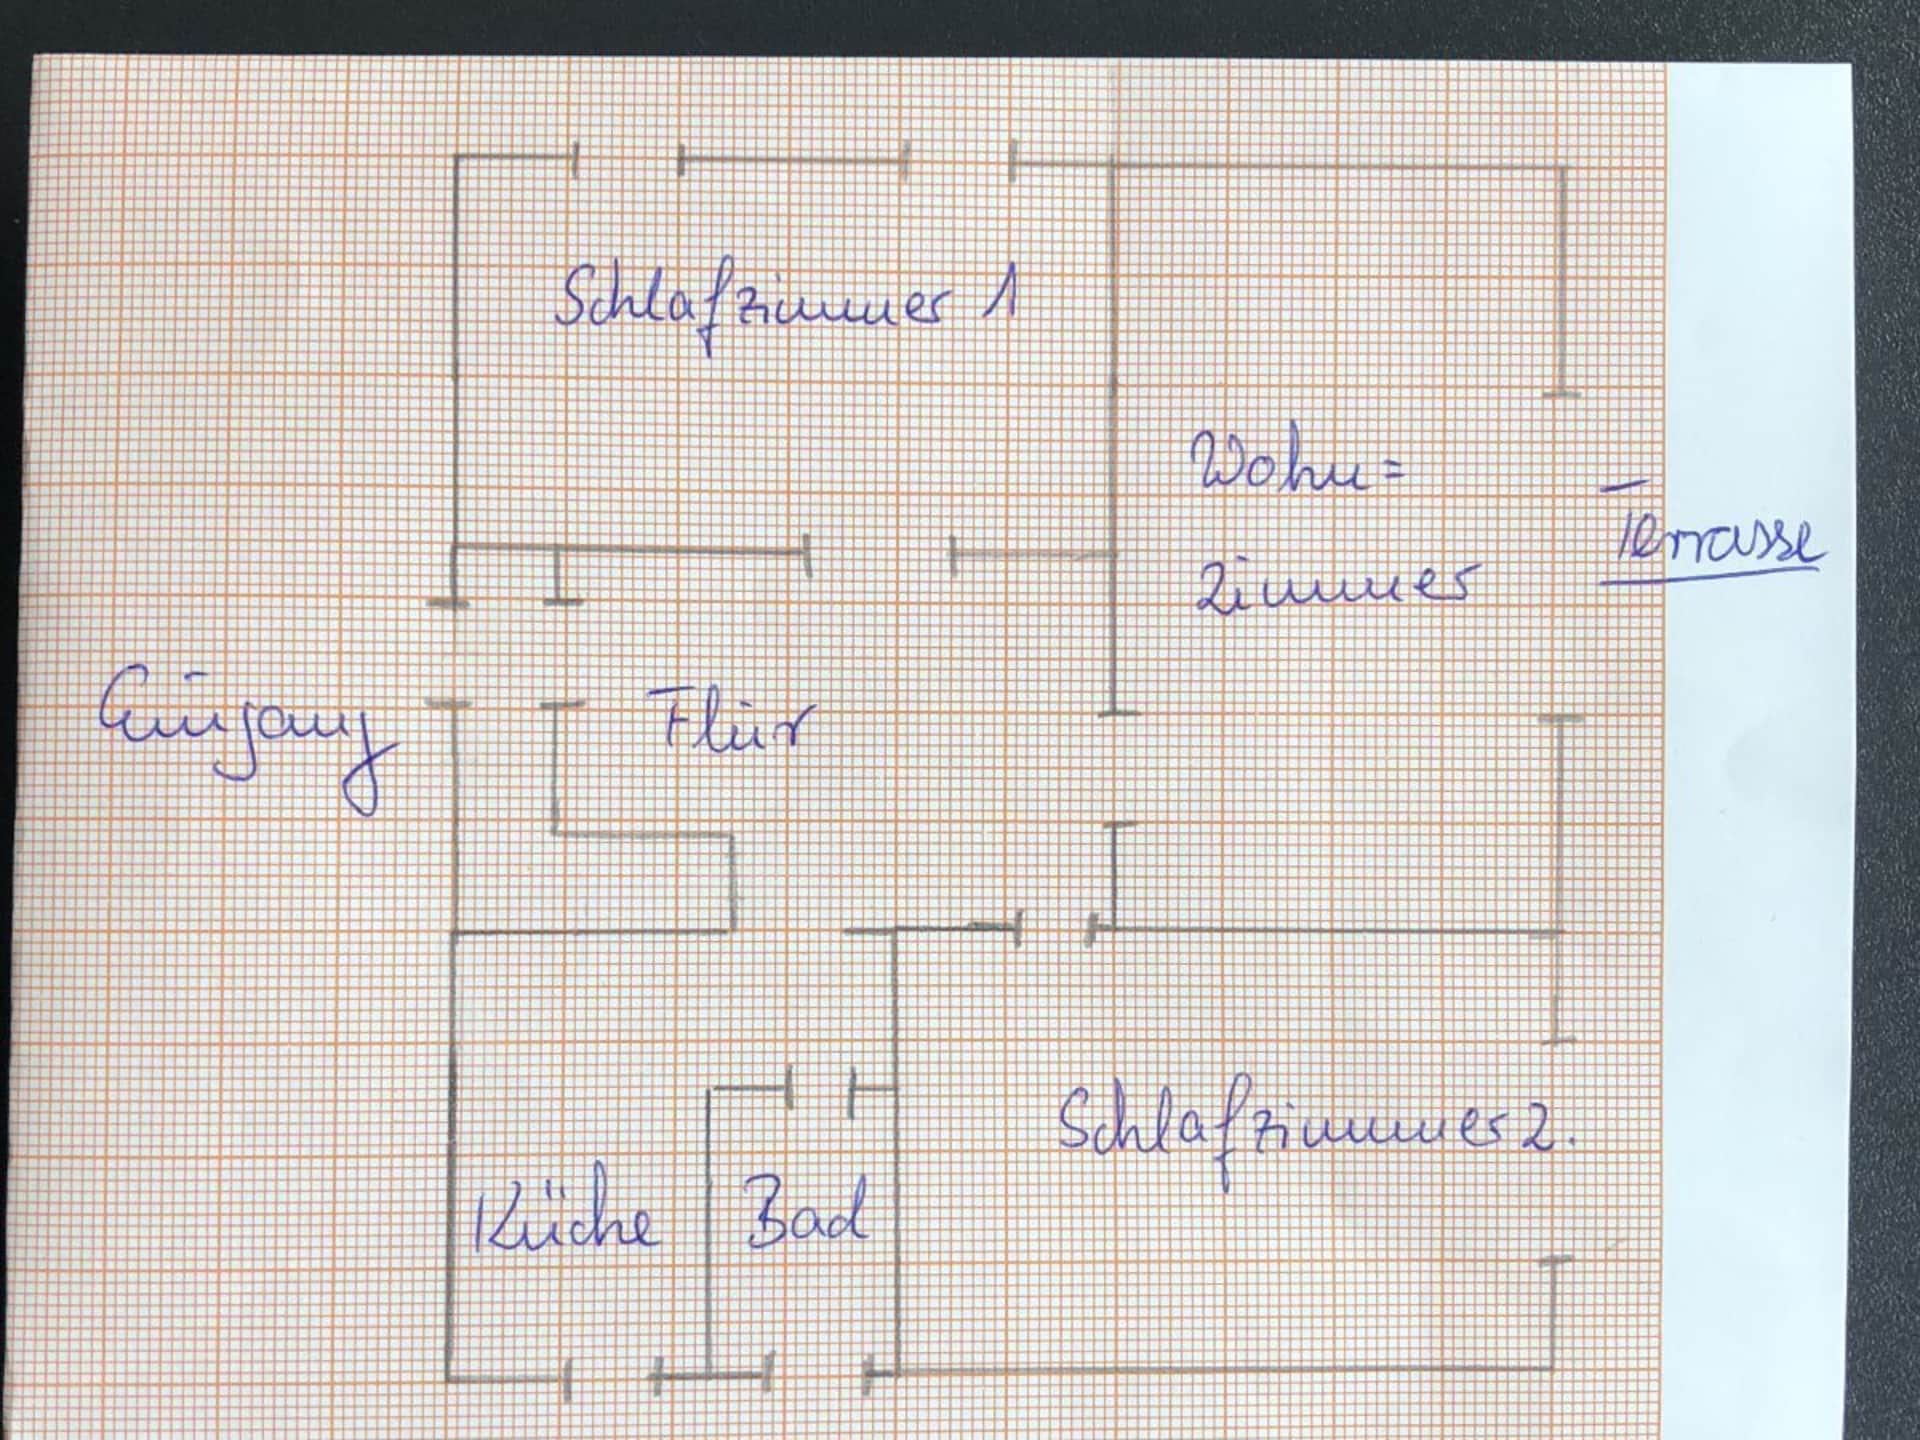 Schlafzimmer 1
Wohn=
zimmer
Terrasse
Eingang
Flur
Schlafzimmer 2.
Küche
Bad